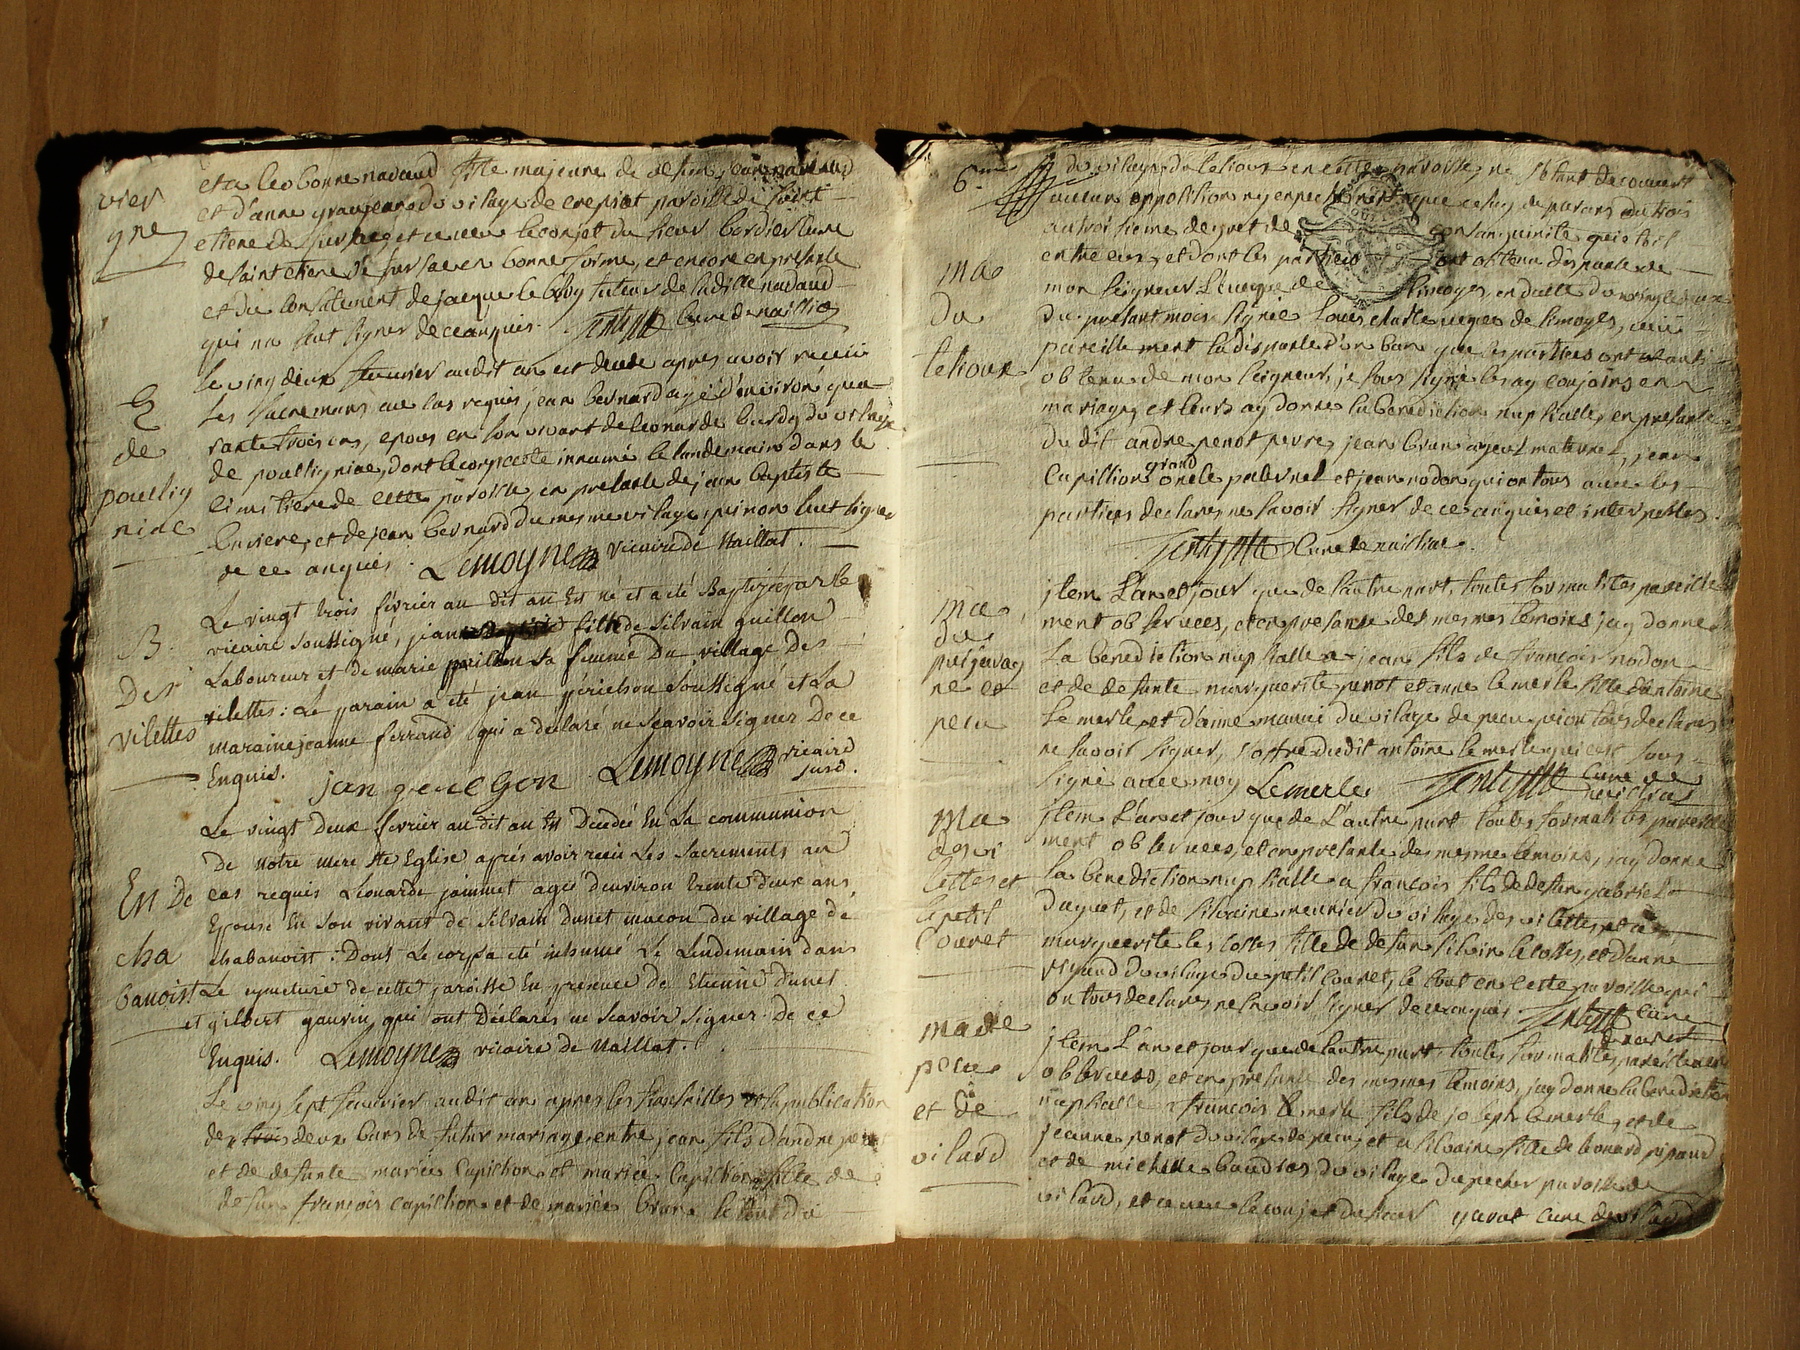 vier
gne
et a leobonne nadaud fille majeure de defun jean nadaud
et d'anne granjean du vilage de crepiat paroisse de saint
etiene de fursac et ce avec le conget du sieur bordier cure
de saint etiene de fursac en bonne forme, et encore en presance
et du consatement de jacque le bloy tuteur de ladite nadaud
qui na saut signer de ce anquis. cure de naillac
E
de
poulig
niac
le vingt deux feuvrier audit an est decede apres avoir receu
les sacremans au cas requis jean bernard agé d'environ qua
rante trois ans, epous en son vivant de leonarde bardy du vilage
de poulligniac, dont le corp a eté innumé le landemain dans le
cimitiere de cette paroisse, en presance de jean baptiste
et de jean bernard du mesme vilage, qui non saut signer
de ce anquis. Lemoyne vicaire de Naillat.
B.
Des
vilettes
Le vingt trois février au dit an est né et a été Baptizé par le
vicaire soussigné, jeanne fille de silvain guillon
Laboureur et de marie sa femme Du village des
vilettes: Le parain a été jean périelson soussigné et La
maraine jeanne ferrand qui a déclaré ne scavoir signer De ce
Enquis. Lemoyne vicaire
jean
En De
cha
banoist
Le vingt deux fevrier au dit an Est Décédée En La communion
de notre mere ste Eglise après avoir recu Les sacrements au
cas requis Léonarde jammet agée d'environ trente deux ans,
Epouse En son vivant de silvain Dunet macon du village de
chabanoist: Dont Le corps a été inhumé Le Lendemain dans
Le cymetiere de cette paroisse En présence de Etienne Dunet
et gilbert gauvin, qui ont Déclarés ne scavoir signer De ce
Enquis. Lemoyne vicaire de Naillat.
Le vingt sept feuvrier audit an apres les fiansailles et la publication
de deux bans de futur mariage, entre jean fils d'andre penot
et de defunte mariée Capilhon et mariée Capilhon fille de
defun françois capilhon et de mariée brune le tout du
6me
ma
du
teliour
du vilage du teliour en cette paroisse, ne s'etant decouvert
aucun opposition ny enpechement que celuy de parans du trois
au troisieme degret de consanguinite qui etoit
entre eux, et dont les parties ont obtenu dispance de
mon seigneur l'eveque de limoges, en datte du vingt
du presant mois signée Louis charle eveque de limoges, veu
pareillement la dispance d'un ban que les parties ont
obtenu de mon seigneur, je sous signé les ay conjoins en
mariage, et leurs ay donne la benediction nupsialle, en presance
dudit andre penot pere, jean brun ayeul maternel, jean
Capilhon grand oncle paternel et jean nodon qui on tous avec les
parties declares ne savoir signer de ce anquis et interpelles.
cure de naillac.
ma
du
puijavag
ne et
pecu
jtem L'an et jour que de l'autre part, toutes formalites pareille
ment observees, et en presance des mesmes temoins, jay donne
La benediction nupsialle a jean fils de françois nodon
et de defunte marguerite penot et anne lemerle fille d'antoine
Le merle et d'anne du vilage de pecu qui on tous declares
ne savoir signer, soffre dudit antoine lemerle qui est sous
signé avec moy Lemerle cure de
ma
des vi
lettes et
le petit
Couret
jtem L'an et jour que de L'autre part toutes formalites pareille
ment observees, et en presance des mesmes temoins, jay donne
La benediction nupsialle a françois fils de defun gabriel
duquet, et de silvaine meunier du vilage des vilettes, et a
marguerite les cosses fille de defun silvain lecosses, et d'anne
rigaud du vilage du petit couret, le tout en cette paroisse qui
on tous declares ne scavoir signer de ce anquis cure
ma de
pecu
et de
vilard
jtem L'an et jour que de lautre part, toutes formalites pareillement
observees, et en presance des mesmes temoins, jay donne la benediction
nupsialle a françois lemerle fils de joseph lemerle, et de
jeanne penot du vilage de pecu, et a silvaine fille de leonard pipaud
et de michelle baudras du vilage du pecher paroisse de
vilard, et ce avec le conjet du sieur garat cure de vilard